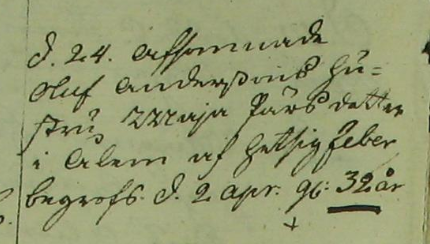 d. 24. afsomnade
Oluf Anderssons Hu=
stru Maja Larsdotter
i Ålem af hetsig feber
begrofs d. 2 apr. 96: 32 år